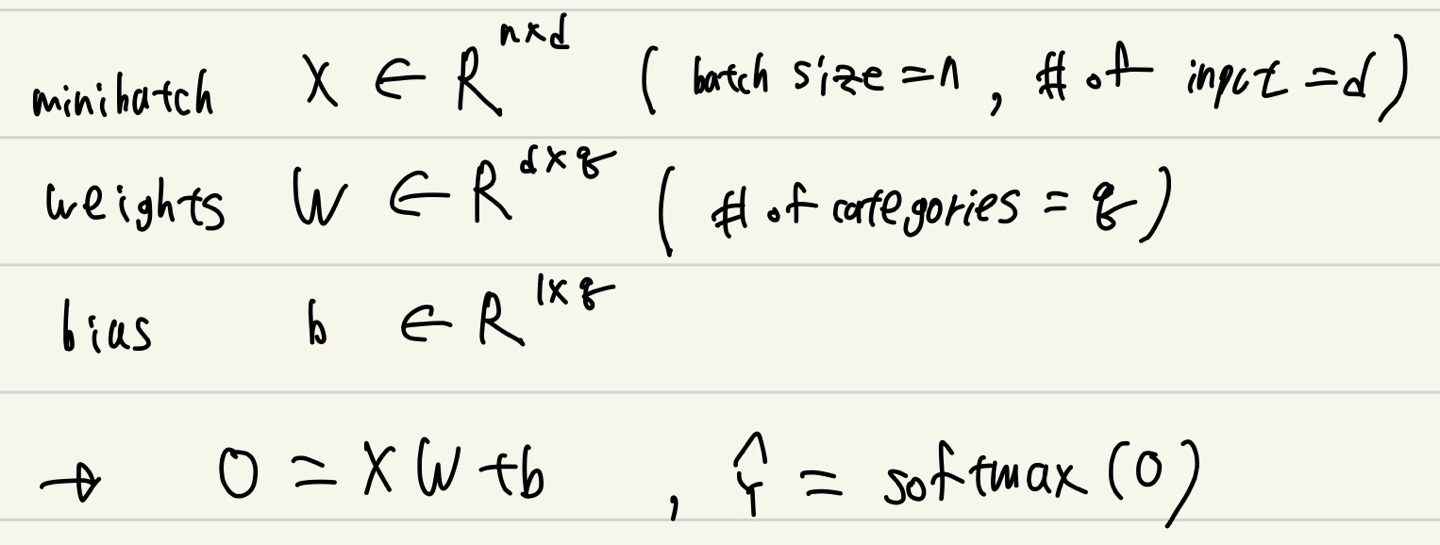 minibatch X ∈ R^{n×d} ( batch size = n , # of input = d )
weights W ∈ R^{d×q} ( # of categories = q )
bias b ∈ R^{1×q}
→ O = XW + b , Ŷ = softmax (O)